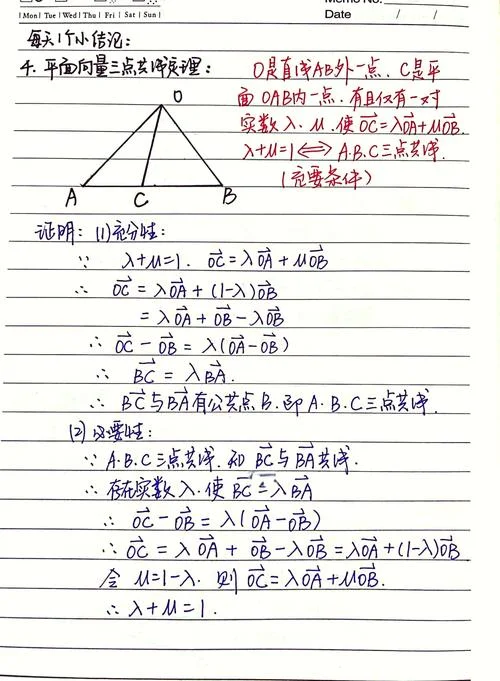 Memo No.
Mon Tue Wed Thu Fri Sat Sun
Date / /
每天1个小结论:
4. 平面向量三点共线定理:
O是直线AB外一点. C是平
面OAB内一点. 有且仅有一对
实数λ. μ. 使OC=λOA+μOB.
λ+μ=1⟺A.B.C三点共线.
(充要条件)
O
A C B
证明: (1)充分性:
∵ λ+μ=1. OC=λOA+μOB
∴ OC=λOA+(1-λ)OB
=λOA+OB-λOB
∴ OC-OB=λ(OA-OB)
∴ BC=λBA.
∴ BC与BA有公共点B. 即A.B.C三点共线.
(2)必要性:
∵ A.B.C三点共线. 和BC与BA共线.
∴ 存在实数λ. 使BC=λBA
∴ OC-OB=λ(OA-OB)
∴ OC=λOA+OB-λOB=λOA+(1-λ)OB
令μ=1-λ. 则OC=λOA+μOB.
∴ λ+μ=1.